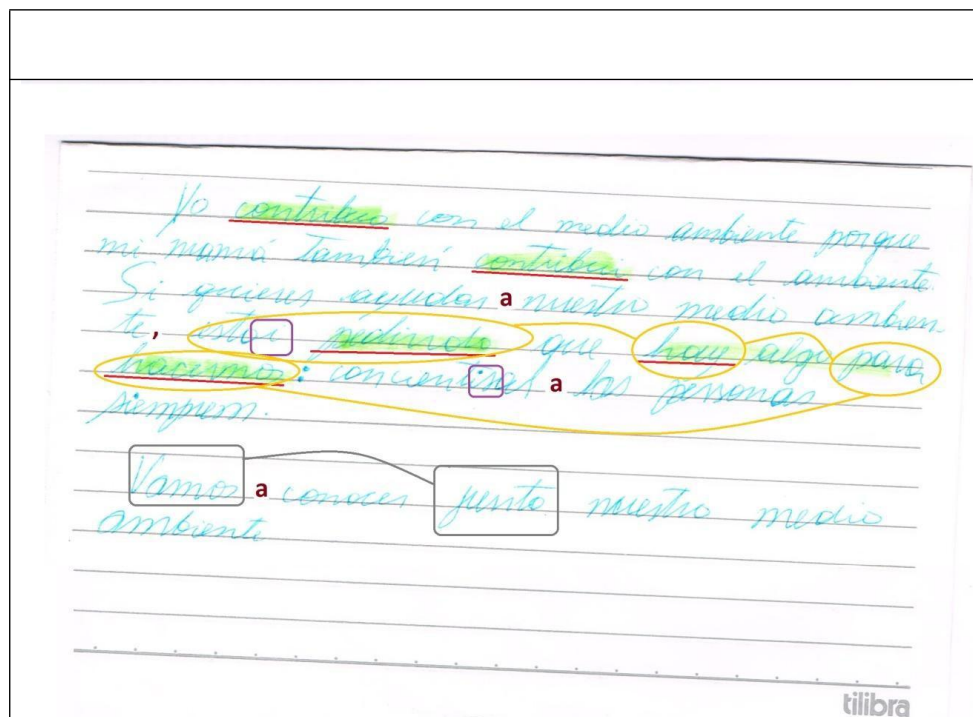 Yo contribuo con el medio ambiente porque
mi mamá también contribui con el ambiente.
Si quieres ayudar a nuestro medio ambien-
te, estoi pediendo que hay algo para
hacermos: concientisar a las personas
siemprem.
Vamos a conocer junto nuestro medio
ambiente
tilibra